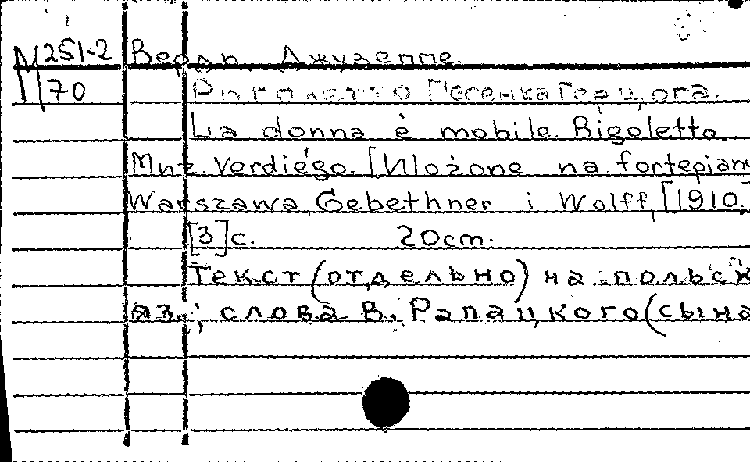 М251-2 Верди, Джузеппе
1/70 Риголетто Песенка Герцога.
La donna è mobile. Rigoletto
Muz. Verdiego. [Ułożone na fortepiam
Warszawa, Gebethner i Wolff, [1910.
[3]с. 20cm.
Текст (отдельно) на польск
яз.; слова В. Рапацкого (сына